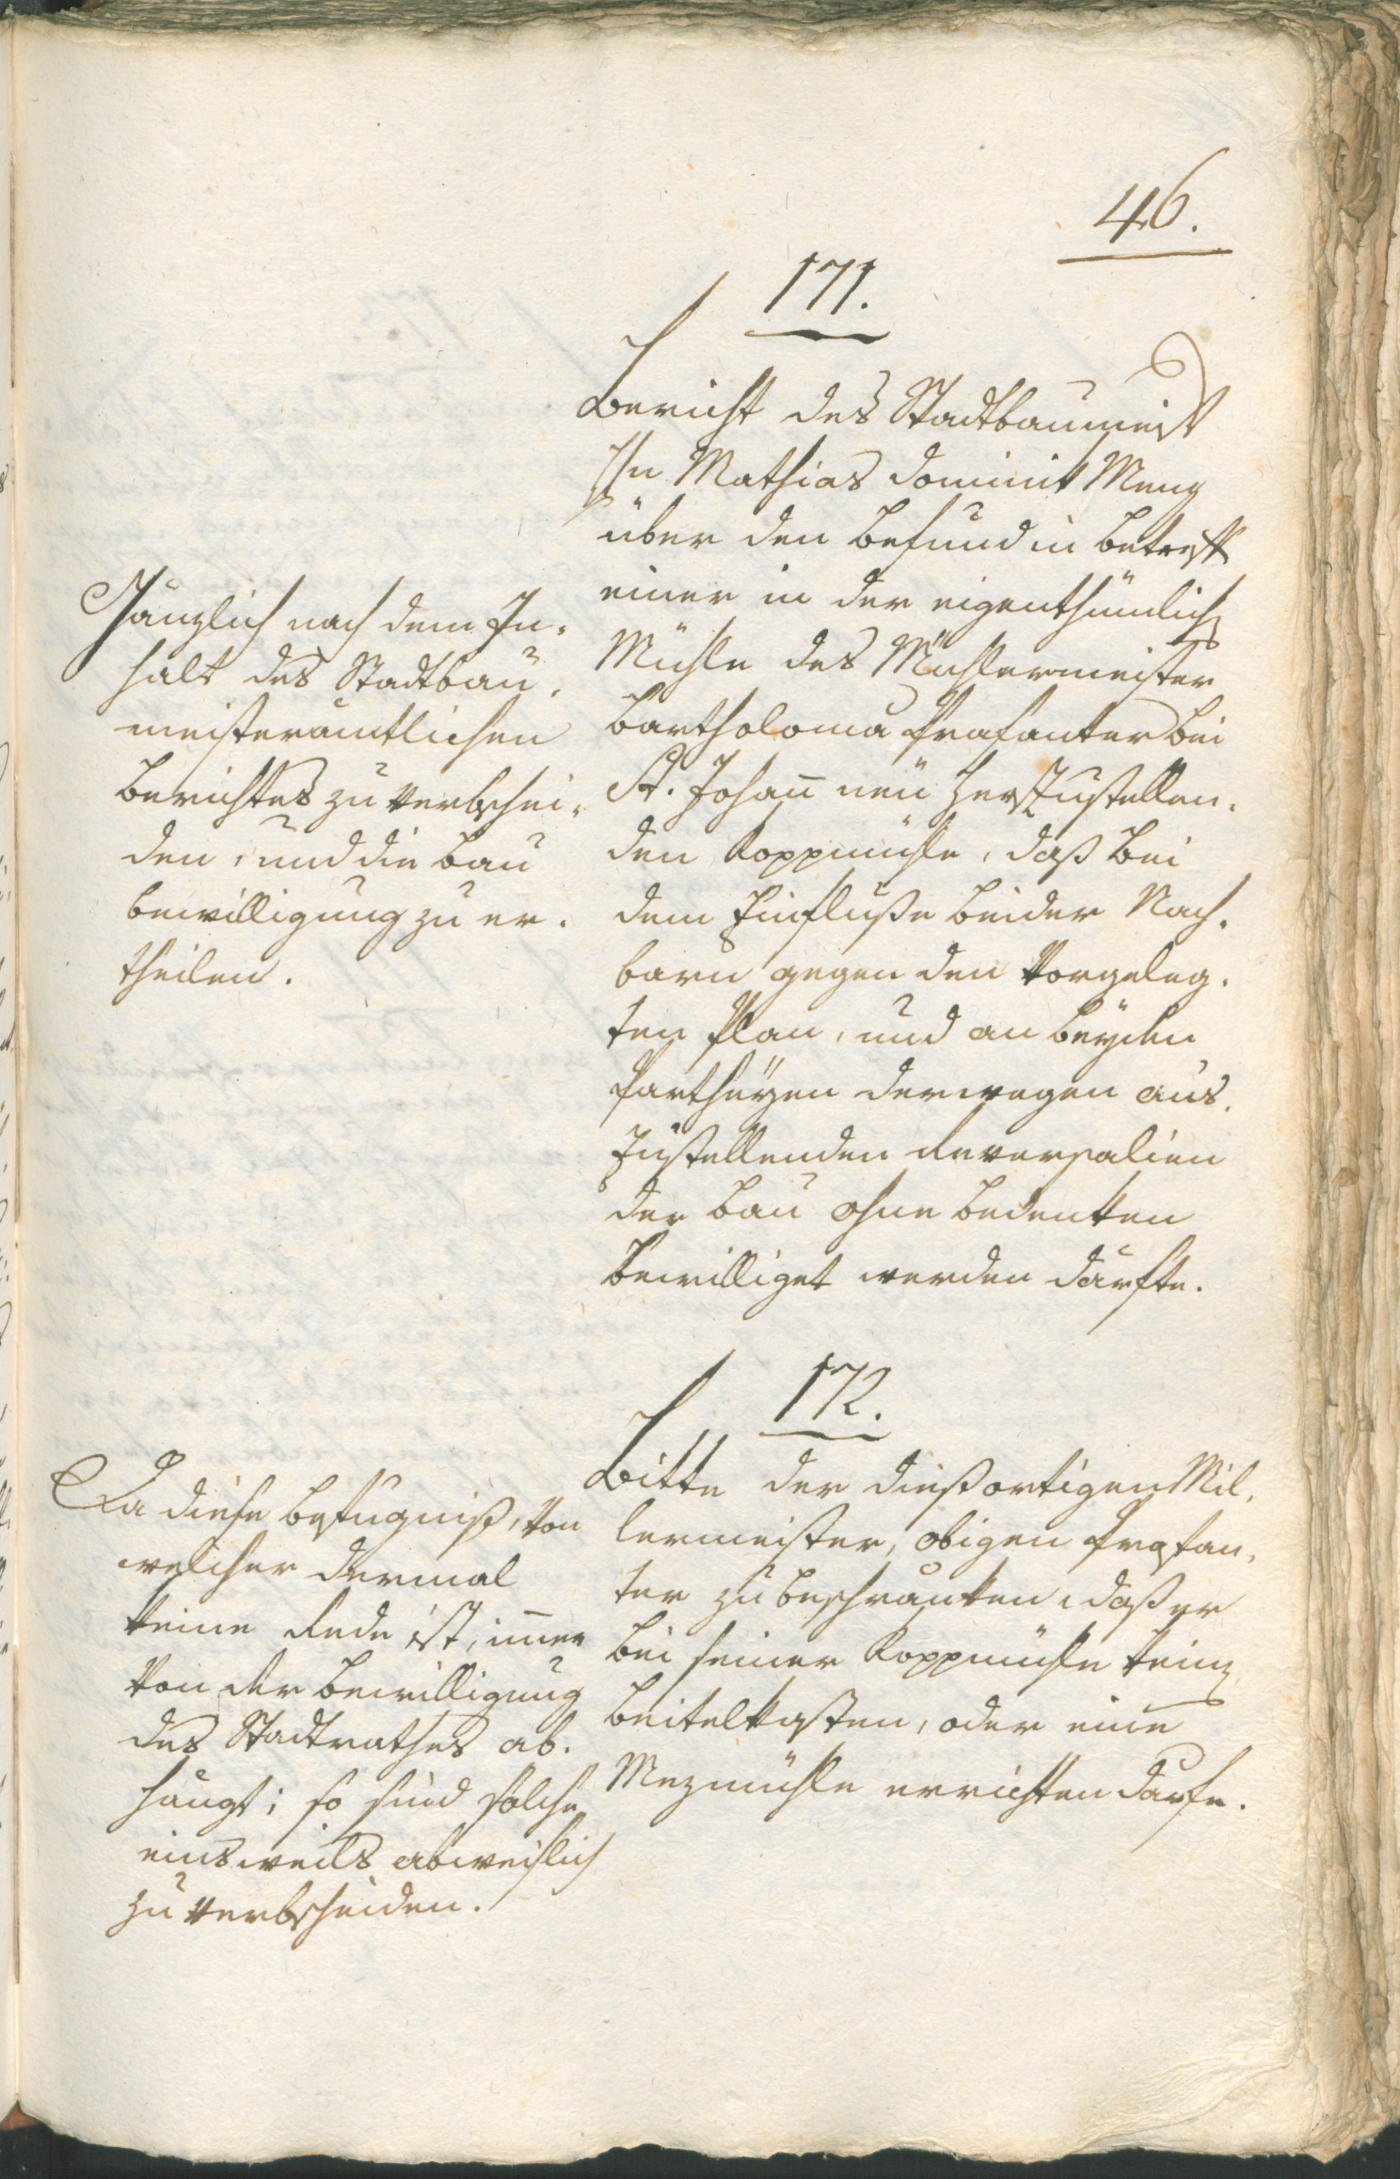 46.
171.
Bericht des Stadtbaumeist
Hn Mathias Dominik Menz
über den Befund in betreff
einer in der eigenthümlich
Mühle des Mühlermeister
Bartholomä Profanter bei
St. Johañ neü herzustellen-
den Koppmühle, daß bei
dem Einfluße beider Nach-
barn gegen den Vorgeleg-
ten Plan, und an beyden
Partheyen derwegen aus-
zustellenden Reversalien
der Bau ohne bedenken
bewilliget werden därfte.
Gänzlich nach dem In-
halt des Stadtbau-
meisterämtlichen
Berichtes zu verbschei-
den, und die Bau
bewilligung zu er-
theilen.
172.
Bitte der dießortigen Mil-
lermeister, obigen Profan-
ter zu beschränken, daß er
bei seiner Koppmühle kein
Beitelkasten, oder eine
Mezmühle errichten därfe.
Da diese Befugniß, von
welcher dermal
keine Rede ist, im̄er
von der Bewilligung
des Stadtrathes ab-
hängt; so sind solche
einsweils abweislich
zu verbscheiden.